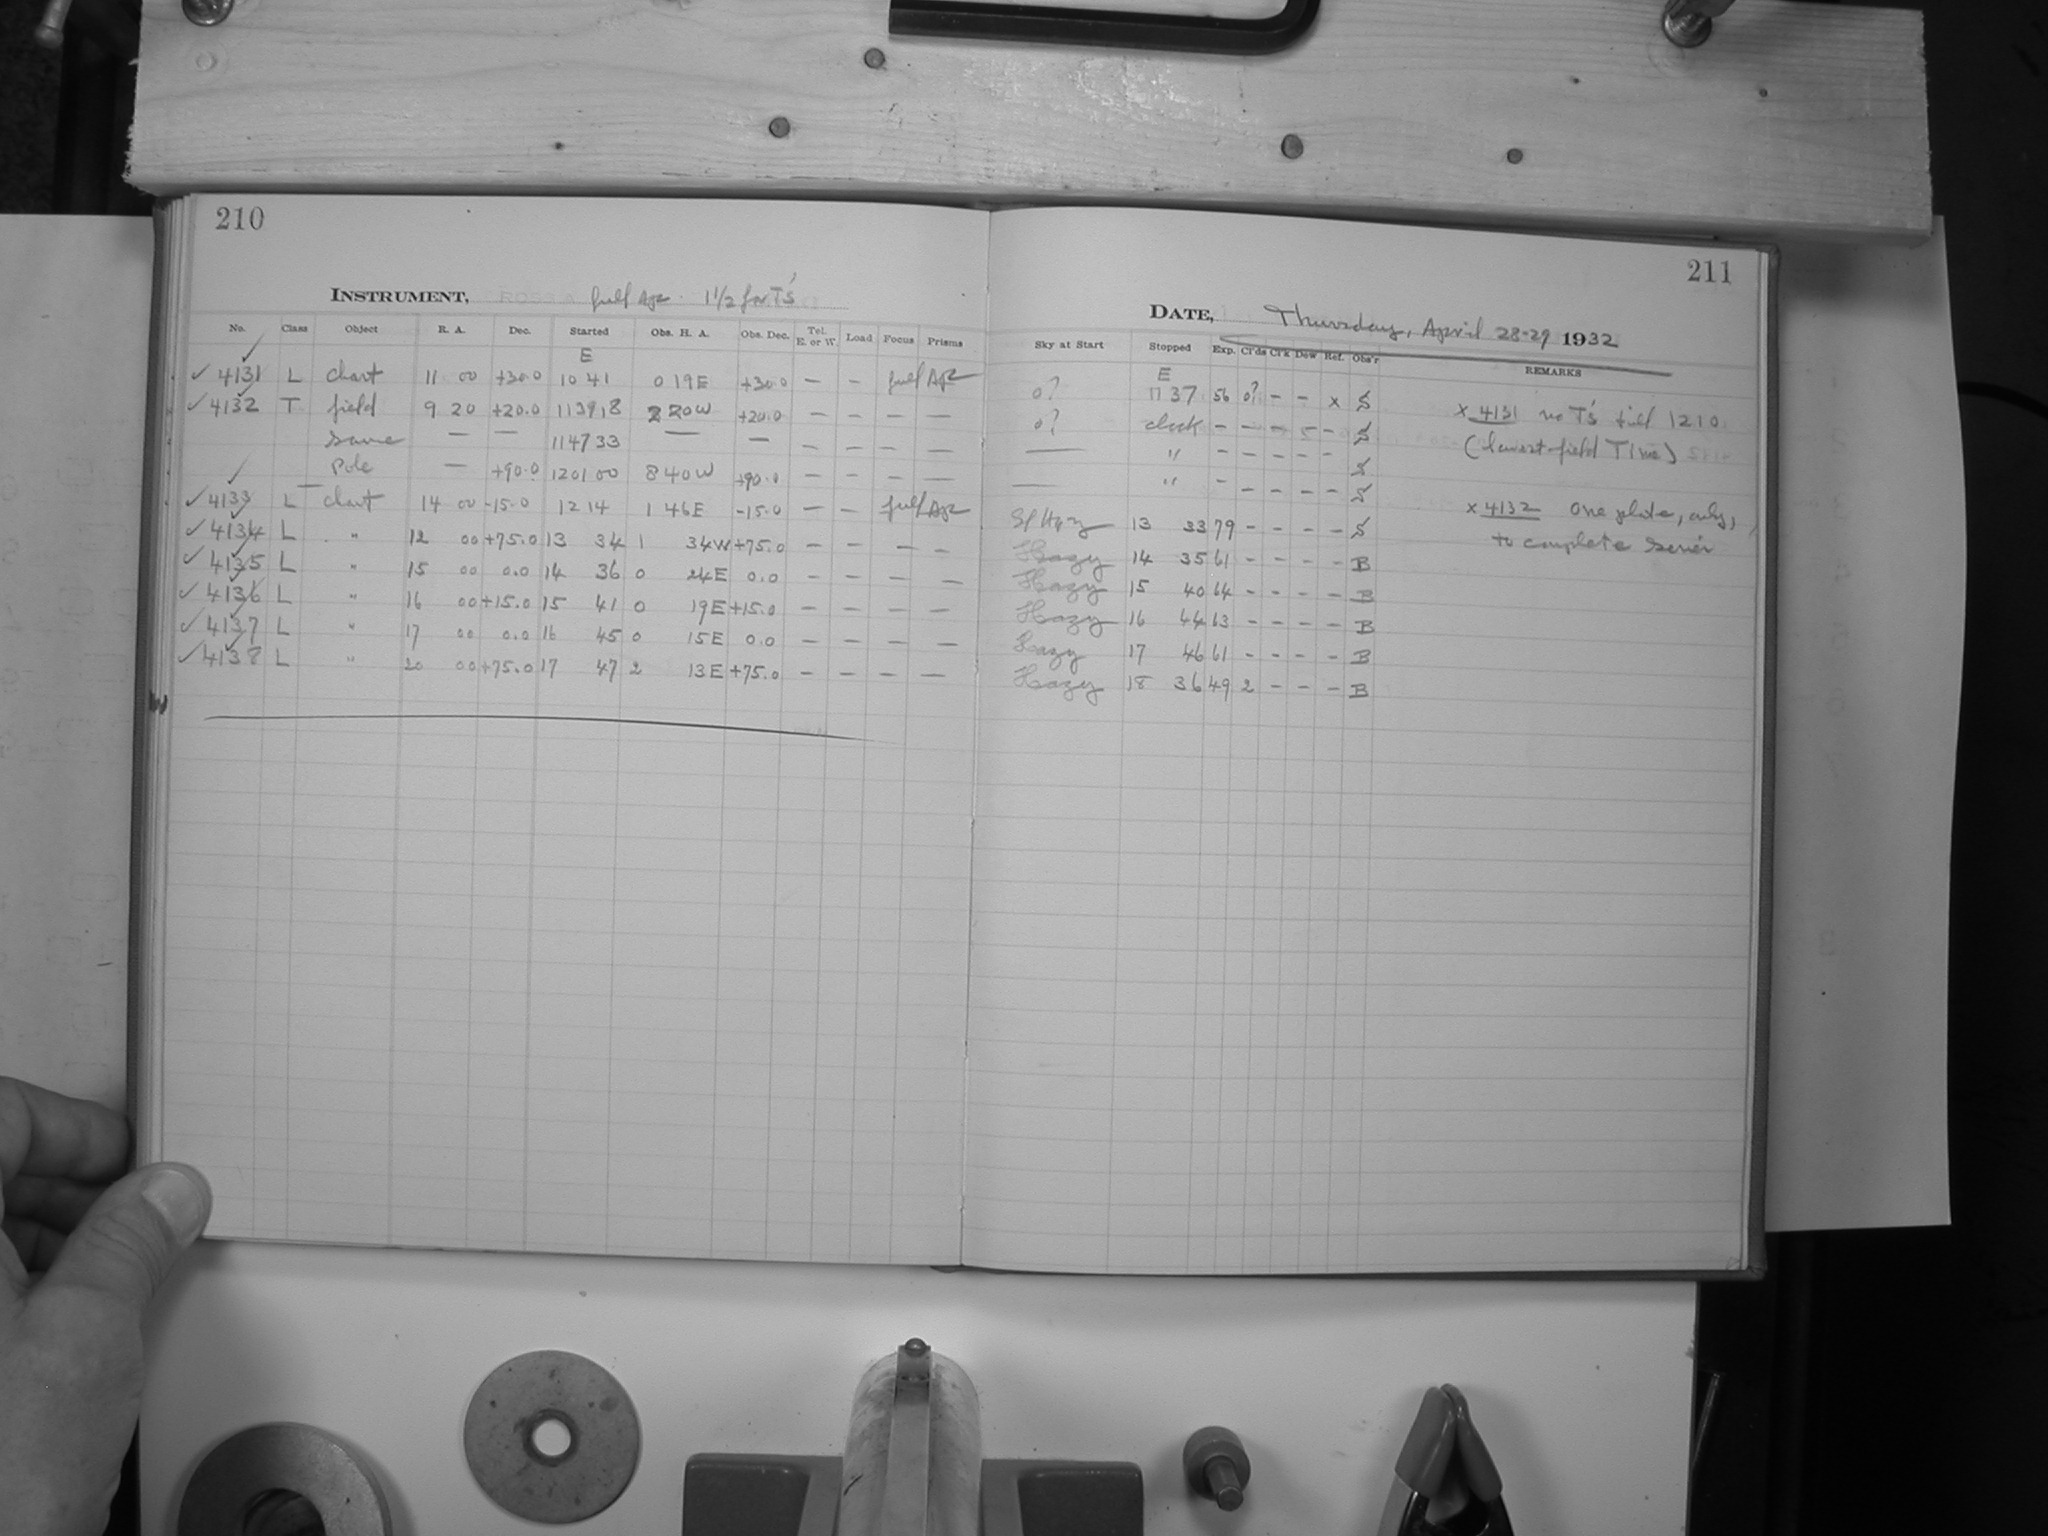 210
INSTRUMENT, full Apr 1 1/2 for T's
No. Class Object R. A. Dec. Started Obs. H. A. Obs. Dec. Tel. E. or W. Load Focus Prisms
E
✓ 4131 L chart 11 00 +30.0 10 41 0 19E +30.0 — — full Apr
✓ 4132 T field 9 20 +20.0 11 39 18 2 20W +20.0 — — — —
same — — 11 47 33 — — — — — —
Pole — +90.0 12 01 00 8 40W +90.0 — — — —
✓ 4133 L chart 14 00 -15.0 12 14 1 46E -15.0 — — full Apr
✓ 4134 L " 12 00 +75.0 13 34 1 34W +75.0 — — — —
✓ 4135 L " 15 00 0.0 14 36 0 24E 0.0 — — — —
✓ 4136 L " 16 00 +15.0 15 41 0 19E +15.0 — — — —
✓ 4137 L " 17 00 0.0 16 45 0 15E 0.0 — — — —
✓ 4138 L " 20 00 +75.0 17 47 2 13E +75.0 — — — —
211
DATE, Thursday, April 28-29 1932
Sky at Start Stopped Exp. Cl'ds Cl'k Dew Ref. Obs'r REMARKS
E
0? 11 37 56 0? — — x S
0? clock — — — — — S
— " — — — — — S
— " — — — — — S
Sl Hazy 13 33 79 — — — — S
Hazy 14 35 61 — — — — B
Hazy 15 40 64 — — — — B
Hazy 16 44 63 — — — — B
Hazy 17 46 61 — — — — B
Hazy 18 36 49 2 — — — B
x 4131 no T's till 1210
field Time)
x 4132 one plate, only,
to complete series